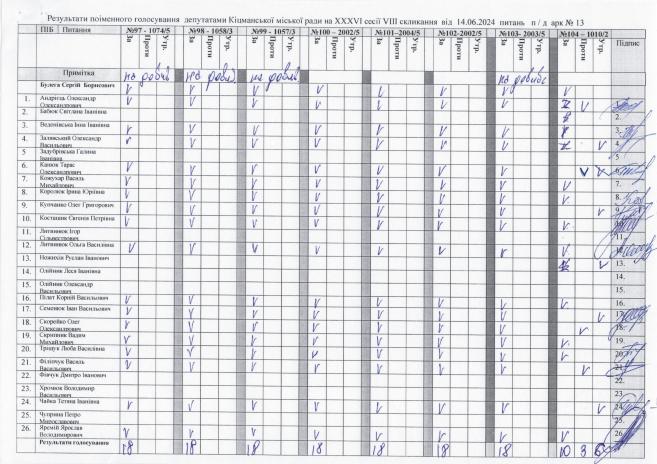 Результати поіменного голосування депутатами Кіцманської міської ради на XXXVI сесії VIII скликання від 14.06.2024 питань п / д арк № 13
ПІБ Питання №97 - 1074/5 №98 - 1058/3 №99 - 1057/3 №100 – 2002/5 №101–2004/5 №102-2002/5 №103- 2003/5 №104 – 1010/2 Підпис
За Проти Утр. За Проти Утр. За Проти Утр. За Проти Утр. За Проти Утр. За Проти Утр. За Проти Утр. За Проти Утр.
Примітка
Булега Сергій Борисович V V V V V V V V
1. Андрієць Олександр Олександрович V V V V V V V V
2. Бабюк Світлана Іванівна 2.
3. Веденівська Інна Іванівна V V V V V V V 3.
4. Залявський Олександр Васильович V V V V V V V V 4.
5. Задубрівська Галина Іванівна 5
6. Канюк Тарас Олександрович V V V V V V V V V
7. Кожухар Василь Михайлович V V V V V V V V 7.
8. Королюк Ірина Юріївна V V V V V V V 8.
9. Купчанко Олег Григорович V V V V V V V V 9
10. Косташик Євгенія Петрівна V V V V V V V V
11. Литвинюк Ігор Сільвестрович 11.
12. Литвинюк Ольга Василівна V V V V V V V V
13. Ножихін Руслан Іванович V 13.
14. Олійник Леся Іванівна 14.
15. Олійник Олександр Васильович 15.
16. Пілат Корній Васильович V V V V V V V V 16.
17. Семенюк Іван Васильович V V V V V V V V 17.
18. Скорейко Олег Олександрович V V V V V V V V 18.
19. Скрипник Вадим Михайлович V V V V V V V V 19.
20. Трищук Люба Василівна V V V V V V V V 20.
21. Філіпчук Василь Васильович V V V V V V V V 21.
22. Фівчук Дмитро Іванович 22.
23. Хромюк Володимир Васильович 23.
24. Чайка Тетяна Іванівна V V V V V V V V 24.
25. Чуприна Петро Мирославович 25.
26. Яремій Ярослав Володимирович V V V V V V V V 26.
Результати голосування 18 18 18 18 18 18 18 10 3 6